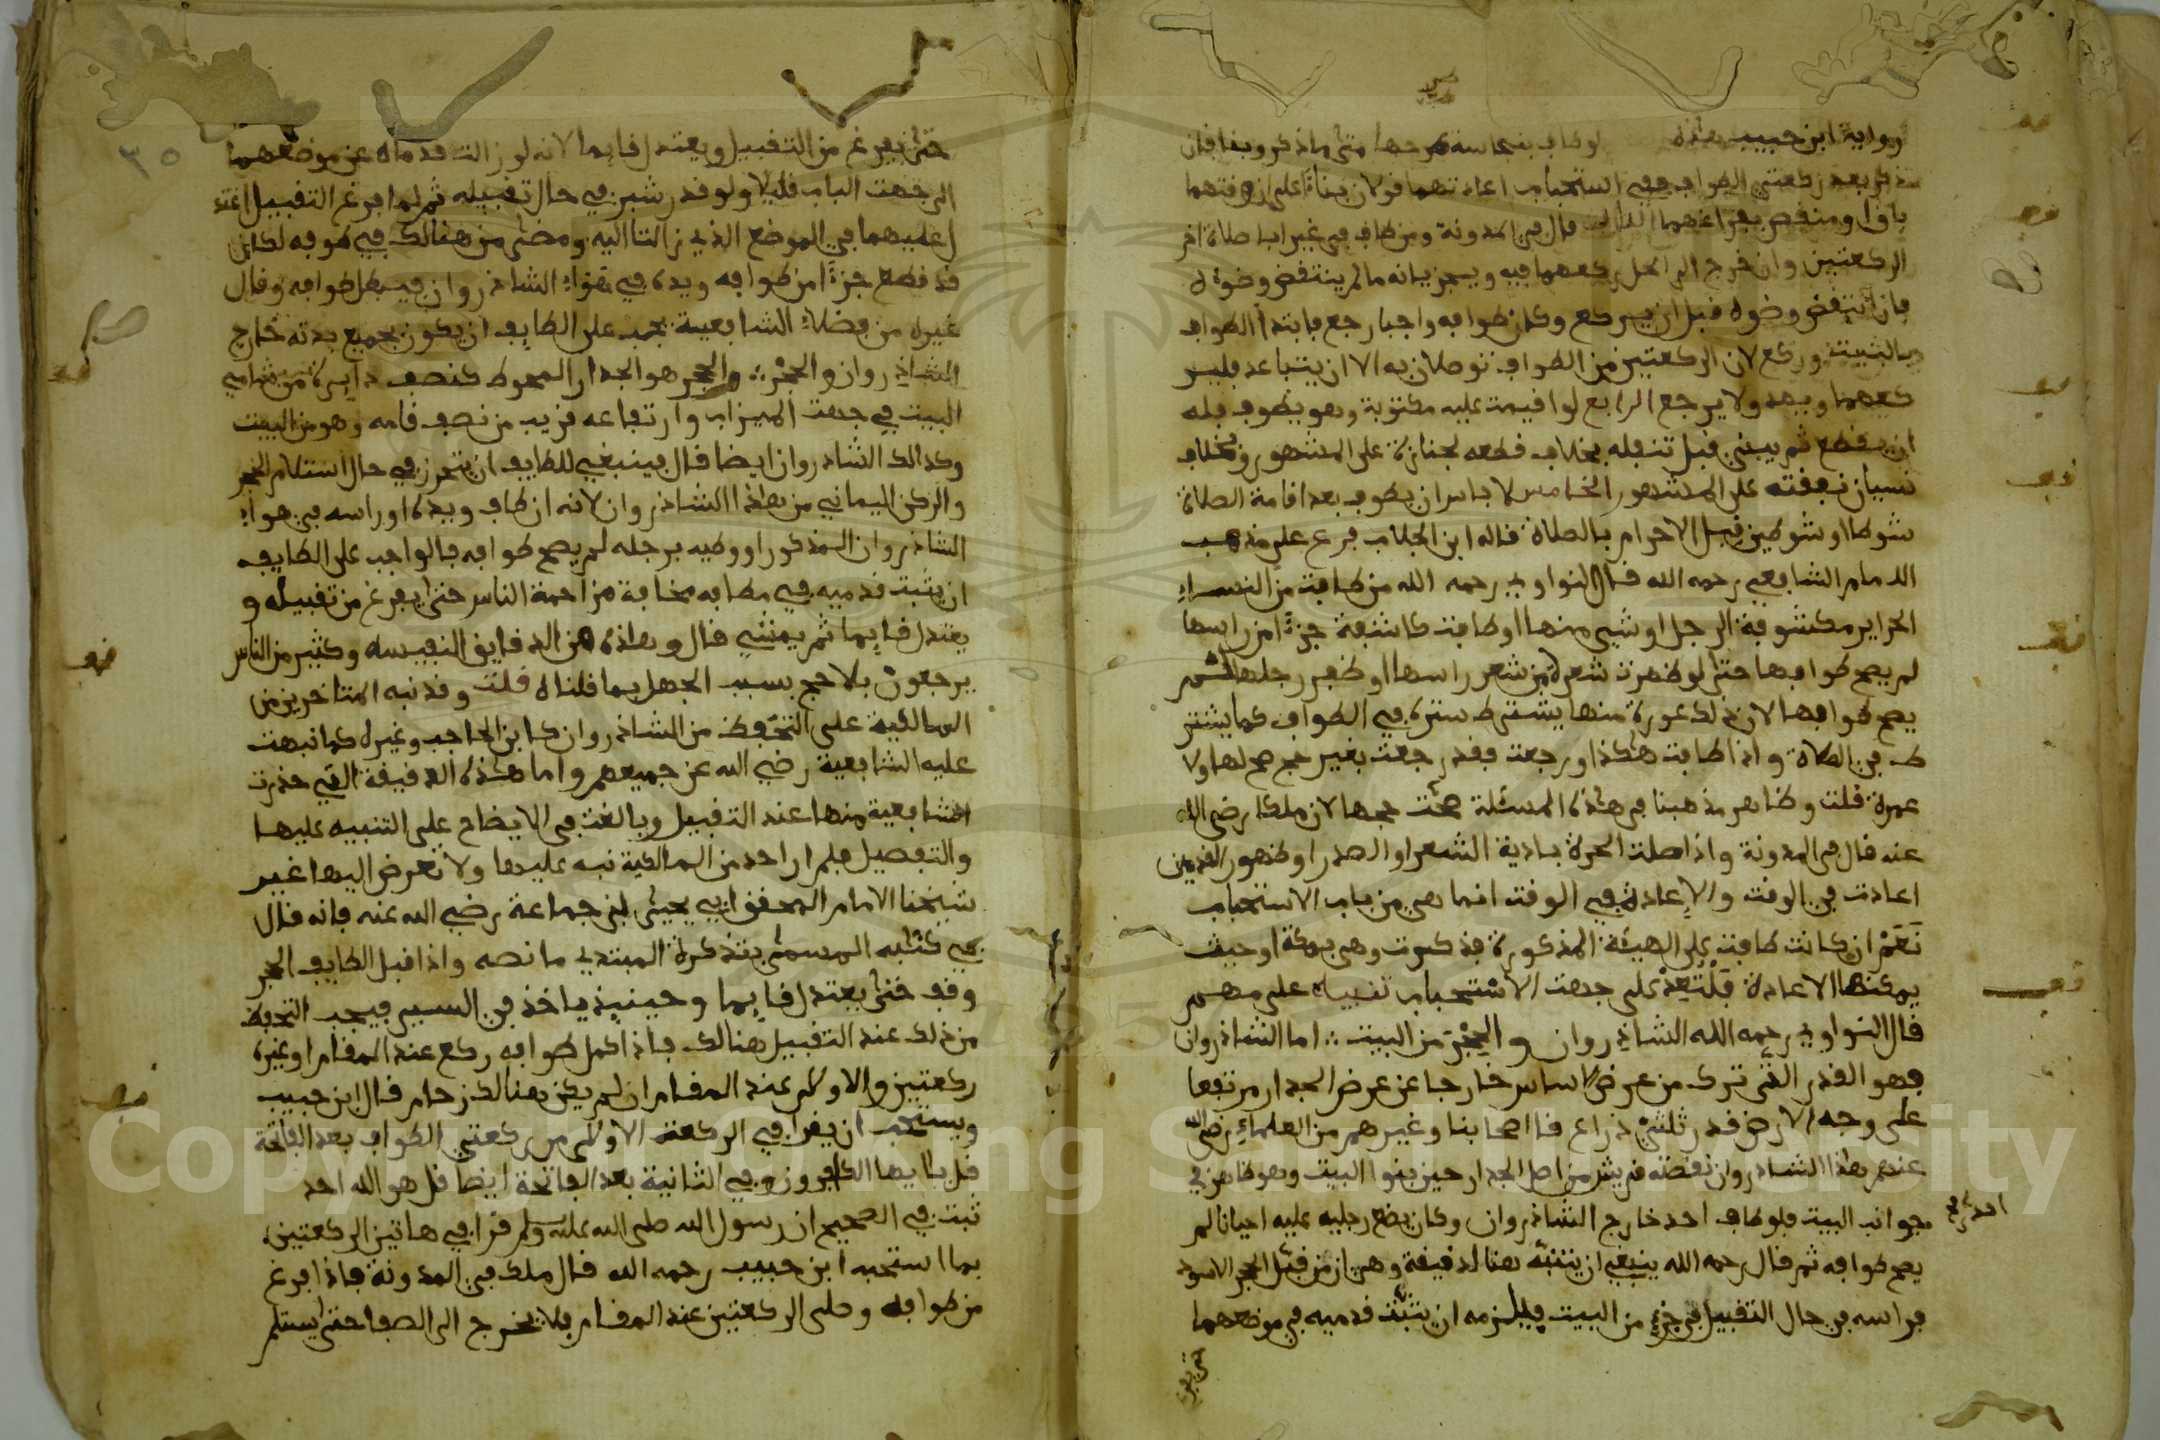 ورواية ابن حبيب هذه لو طاف بنجاسة طرحها متى ما ذكر وبنا فإن
ذكر بعد ركعتي الطواف ففي استحباب اعادتهما قولان بناء على ان وقتهما
باق او منقض بفراغهما الثالث قال في المدونة ومن طاف في غير ابان صلاة اخر
الركعتين وان خرج الى الحل ركعهما فيه ويجزيانه ما لم ينتقض وضوءه
فان انتقض وضوه قبل ان يركع وكان طوافه واجبا رجع فابتدا الطواف
بالبيت وركع لان الركعتين من الطواف توصلان به الا ان يتباعد فلير
كعهما ويهد ولا يرجع الرابع لو اقيمت عليه مكتوبة وهو يطوف فله
ان يقطع ثم يبني قبل تنفله بخلاف قطعه لجنازة على المشهور وبخلاف
نسيان نفقته على المشهور الخامس لا باس ان يطوف بعد اقامة الصلاة
شوطا او شوطين قبل الاحرام بالصلاة قاله ابن الجلاب فرع على مذهب
الامام الشافعي رحمه الله قال النواوي رحمه الله من طافت من النساء
الحراير مكشوفة الرجل او شيء منها او طافت كاشفة جزءا من راسها
لم يصح طوافها حتى لو ظهرت شعرة من شعر راسها او ظفر رجلها لم
يصح طوافها لان ذلك عورة منها يشترط سترة في الطواف كما يشتر
ط في الصلاة واذا طافت هكذا ورجعت فقد رجعت بغير حج صح لها ولا
عمرة قلت وظاهر مذهبنا في هذه المسئلة صحت حجها لان ملكا رضي الله
عنه قال في المدونة واذا صلت الحرة بادية الشعر او الصدر او ظهور القدمين
اعادت في الوقت والاعادة في الوقت انما هي من باب الاستحباب
نعم ان كانت طافت على الهيئة المذكورة فذكرت وهي بمكة او حيث
يمكنها الاعادة فلتعد على جهت الاستحباب تنبيه على مهم
قال النواوي رحمه الله الشاذروان والحجر من البيت اما الشاذروان
فهو القدر الذي ترك من عرض الاساس خارجا عن عرض الجدار مرتفعا
على وجه الارض قدر ثلثي ذراع قا اصحابنا وغيرهم من العلماء رضي الله
عنهم هذا الشاذروان نقضته قريش من اصل الجدار حين بنوا البيت وهو ظاهر في
جوانب البيت فلو طاف احد خارج الشاذروان وكان يضع رجليه عليه احيانا لم
يصح طوافه ثم قال رحمه الله ينبغي ان يتنبه هنا لدقيقة وهي ان من قبل الحجر الاسود
فراسه في حال التقبيل في جزء من البيت فيلزمه ان يثبت قدميه في موضعهما
حتى يفرغ
٣٥
حتى يفرغ من التقبيل ويعتدل قايما لانه لو زالت قدماه عن موضعهما
الى جهت الباب قليلا ولو قدر شبر في حال تقبيله ثم لما فرغ التقبيل اعتد
ل عليهما في الموضع الذي زالتا اليه ومضى من هنالك في طوفه لكان
قد قطع جزءا من طوافه ويده في هواء الشاذروان فيبطل طوافه وقال
غيره من فضلاء الشافعية يجب على الطايف ان يكون بجميع بدنه خارج
الشاذروان والحجر والحجر هو الجدار المحوط كنصف دايرة من شامي
البيت في جهت الميزاب وارتفاعه قريب من نصف قامه وهو من البيت
وكذالك الشاذروان ايضا قال فينبغي للطايف ان يتحرز في حال استلام الحجر
والركن اليماني من هذا الشاذروان لانه ان طاف ويده او راسه في هواء
الشاذروان المذكور او وطيه برجله لم يصح طوافه فالواجب على الطايف
ان يثبت قدميه في مطافه مخافة مزاحمة الناس حتى يفرغ من تقبيله و
يعتدل قايما ثم يمشي قال وهذه من الدقايق النفيسه وكثير من الناس
يرجعون بلا حج بسبب الجهل بما قلناه قلت وقد نبه المتاخرين من
المالكية على التحفظ من الشاذروان كابن الحاجب وغيره كما نبهت
عليه الشافعية رضي الله عن جميعهم واما هذه الدقيقة التي حذرت
الشافعية منها عند التقبيل وبالغت في الايضاح على التنبيه عليها
والتفصيل فلم ار احد من المالكية نبه عليها ولا تعرض اليها غير
شيخنا الامام المحقق ابي يحيى ابن جماعة رضي الله عنه فانه قال
في كتبه المسمى بتذكرة المبتدي ما نصه واذا قبل الطايف الحجر
وقف حتى يعتدل قايما وحينيذ ياخذ في السير فيجب التحفظ
من ذلك عند التقبيل هنالك فاذا كمل طوافه ركع عند المقام او غيره
ركعتين والاولى عند المقام ان لم يكن هنالك زحام قال ابن حبيب
ويستحب ان يقرا في الركعة الاولى من ركعتي الطواف بعد الفاتحة
قل يا ايها الكافرون وفي الثانية بعد الفاتحة ايضا قل هو الله احد
ثبت في الصحيح ان رسول الله صلى الله عليه وسلم قرا في هاتين الركعتين
بما استحبه ابن حبيب رحمه الله قال ملك في المدونة فاذا فرغ
من طوافه وصلى الركعتين عند المقام فلا يخرج الى الصفا حتى يستلم
Copyright © King Saud University
1957